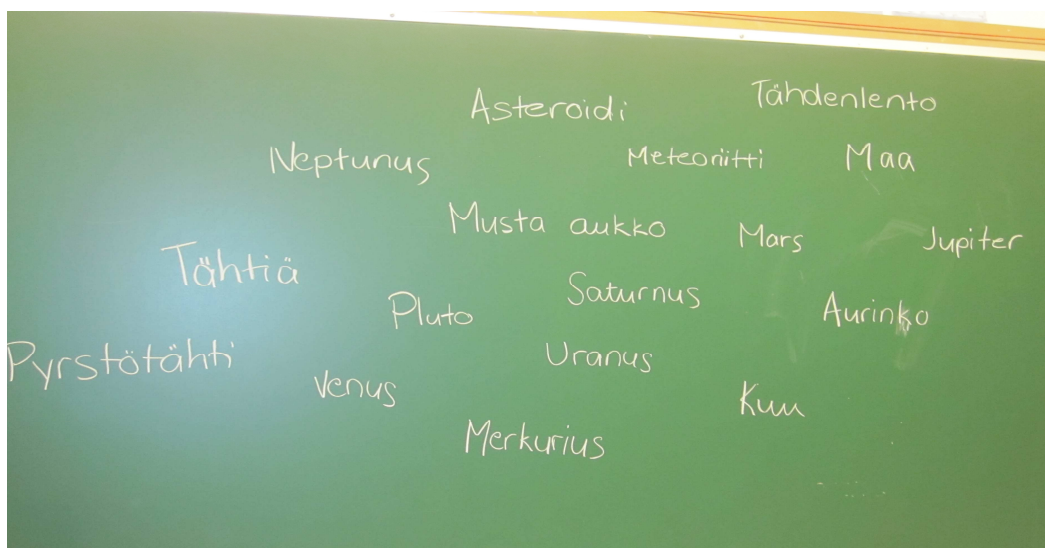 Asteroidi
Tähdenlento
Neptunus
Meteoriitti
Maa
Musta aukko
Mars
Jupiter
Tähtiä
Saturnus
Pluto
Aurinko
Pyrstötähti
Uranus
Venus
Kuu
Merkurius